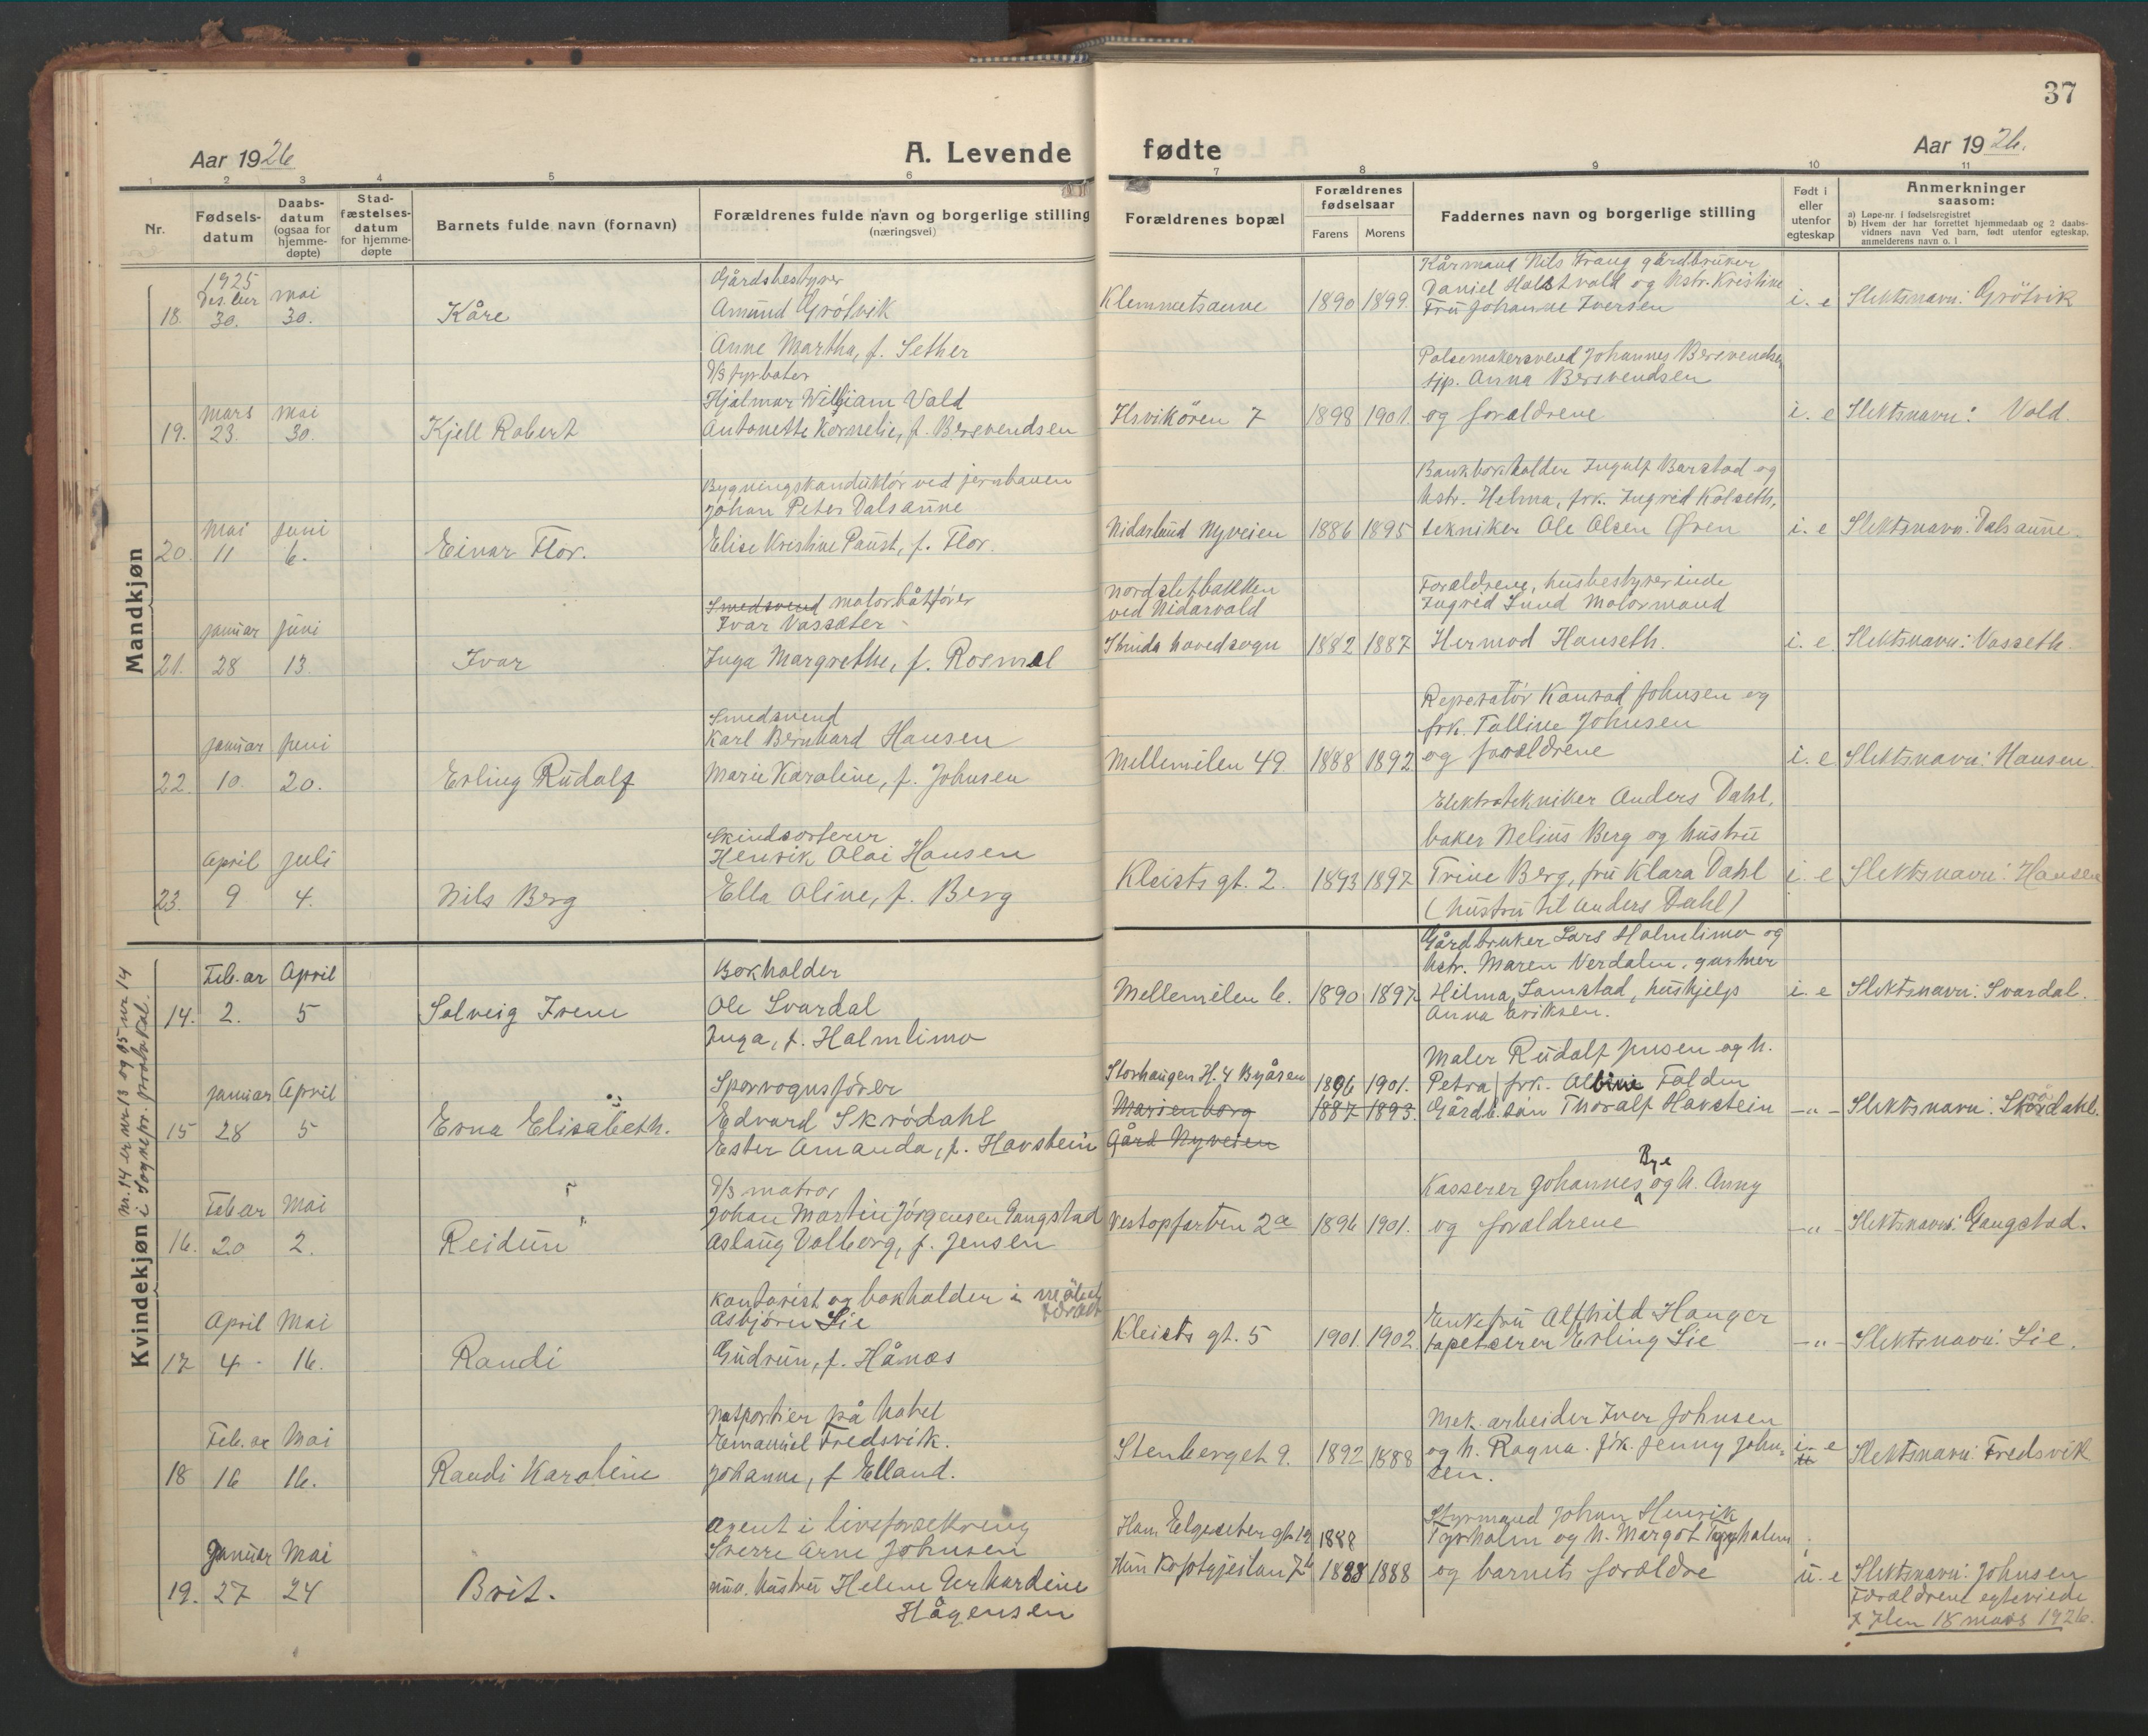 37
Aar 1926
A. Levende fødte
Aar 1926.
1 2 3 4 5 6 7 8 9 10 11
Nr.
Fødsels-
datum
Daabs-
datum
(ogsaa for
hjemme-
døpte)
Stad-
fæstelses-
datum
for hjemme-
døpte
Barnets fulde navn (fornavn)
Forældrenes fulde navn og borgerlige stilling
(næringsvei)
Forældrenes bopæl
Forældrenes
fødselsaar
Farens Morens
Faddernes navn og borgerlige stilling
Født i
eller
utenfor
egteskap
Anmerkninger
saasom:
a) Løpe-nr. i fødselsregistret
b) Hvem der har forrettet hjemmedaab og 2 daabs-
vidners navn Ved barn, født utenfor egteskap,
anmelderens navn o. l
Mandkjøn
1925
Des.ber mai
18. 30. 30.
Kåre
Gårdsbestyrer
Amund Grötvik
Anne Martha, f. Sether
Klemmetsaune
1890 1899.
Kårmand Nils Trang gårdbruker
Daniel Halstvald og hstr. Kristine
Fru Johanne Iversen
i. e
Slektsnavn: Grötvik
mars mai
19. 23. 30.
Kjell Robert
D/S fyrbøter
Hjalmar William Vald
Antonette Kornelie, f. Bersvendsen
Ilsvikören 7
1898 1901.
Pølsemakersvend Johannes Bersvendsen
tjp. Anna Bersvendsen
og forældrene
i. e
Slektsnavn: Vold.
Mai juni
20. 11 6.
Einar Flor.
Bygningskonduktör ved jernbanen
Johan Peter Dalsaune
Elise Kristine Paust, f. Flor.
Nidarlund Nyveien
1886 1895
Bankbokholder Ingulf Barstad og
hstr. Helma, frk. Ingrid Kolseth,
tekniker Ole Olsen Øren
i. e
Slektsnavn: Dalsaune.
januar juni
21. 28 13.
Ivar
Smedsvend motorbåtfører
Ivar Vassæter
Inga Margrethe, f. Rosmæl
Nordsletbakken
ved Nidarvold
Strinda hovedsogn
1882 1887
Forældrene, husbestyrerinde
Ingrid Lund Motormand
Hermod Hanseth.
i. e.
Slektsnavn: Vasseth.
januar juni
22. 10. 20.
Erling Rudolf
Smedsvend
Karl Bernhard Hansen
Marie Karoline, f. Johnsen
Mellemilen 49
1888 1892
Reperatör Konrad Johnsen og
frk. Talline Johnsen
og forældrene
i. e
Slektsnavn: Hansen.
April juli
23. 9 4.
Nils Berg
Skindsorterer
Henrik Olai Hansen
Ella Oline, f. Berg
Kleists gt. 2.
1893 1897
Elektrotekniker Anders Dahl,
baker Nelius Berg og hustru
Trine Berg, fru Klara Dahl
(hustru til Anders Dahl)
i. e
Slektsnavn: Hansen
Kvindekjøn
Nr. 14 er nr 13 og 15 nr 14
i Sognepr. protokol.
Feb.ar April
14. 2. 5
Solveig Irene
Bokholder
Ole Svardal
Inga, f. Halmlimo
Mellemilen 6.
1890 1897.
Gårdbruker Lars Halmlimo og
hstr. Maren Verdalen, gartner
Hilma Lamstad, hushjelp
Anna Eriksen.
i. e
Slektsnavn: Svardal.
januar April
15 28 5
Erna Elisabeth.
Sporvognsfører
Edvard Skrödahl
Ester Amanda, f. Havstein
Storhaugen H. 4 Byåsen
Marienborg
Gård Nyveien
1896 1901.
1887 1893.
Maler Rudolf Jusen og h.
Petra, frk. Albine Folden
Gårdb.sön Thoralf Havstein
-"-
Slektsnavn: Skrødahl.
Feb.ar Mai
16. 20 2.
Reidun
D/S matros
Johan Martin Jörgensen Gangstad
Aslaug Valborg, f. Jensen
Vestopfarten 2a
1896 1901.
Kasserer Johannes Bye og h. Anny
og forældrene
-"-
Slektsnavn: Gangstad.
April Mai
17 4 16.
Randi
Kontorist og bokholder i
Asbjørn Lie
Gudrun, f. Hånæs
Kleists gt. 5
1901. 1902.
Enkefru Alfhild Hanger
tapetserer Erling Lie
-"-
Slektsnavn: Lie.
Feb. ar Mai
18 16 16.
Randi Karoline
Natportier på hotel
Emanuel Fredsvik.
Johanne, f Elland.
Stenberget 9.
1892 1888
Mek. arbeider Iver Johnsen
og h. Ragna. frk. Jenny John-
sen.
i. e
Slektsnavn: Fredsvik
Januar Mai
19. 27 24
Brit.
Agent i livsforsekring
Sverre Arne Johnsen
nuv. hustru Helene Gerhardine
Hågensen
Ham Elgeseter gt 19
1888
1888 1888
Styrmand Johan Henrik
Tyrholm og h. Margot Tyrholm
og barnets forældre
u. e
Slektsnavn: Johnsen
Forældrene egteviede
I Ilen 18 mars 1926.